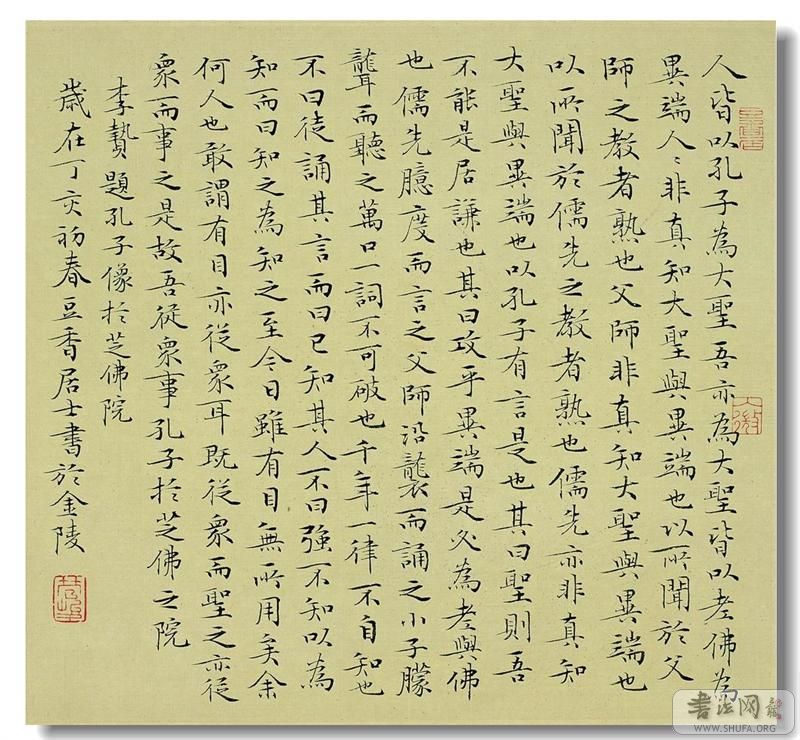 人皆以孔子為大聖吾亦為大聖皆以老佛為
異端人〻非真知大聖與異端也以所聞於父
師之教者熟也父師非真知大聖與異端也
以所聞於儒先之教者熟也儒先亦非真知
大聖與異端也以孔子有言是也其曰聖則吾
不能是居謙也其曰攻乎異端是必為老與佛
也儒先臆度而言之父師沿襲而誦之小子朦
聾而聽之萬口一詞不可破也千年一律不自知也
不曰徒誦其言而曰已知其人不曰強不知以為
知而曰知之為知之至今日雖有目無所用矣余
何人也敢謂有目亦從眾耳既從眾而聖之亦從
眾而事之是故吾從眾事孔子於芝佛之院
李贄題孔子像於芝佛院
歲在丁亥初春豆香居士書於金陵
書法网
WWW.SHUFA.ORG